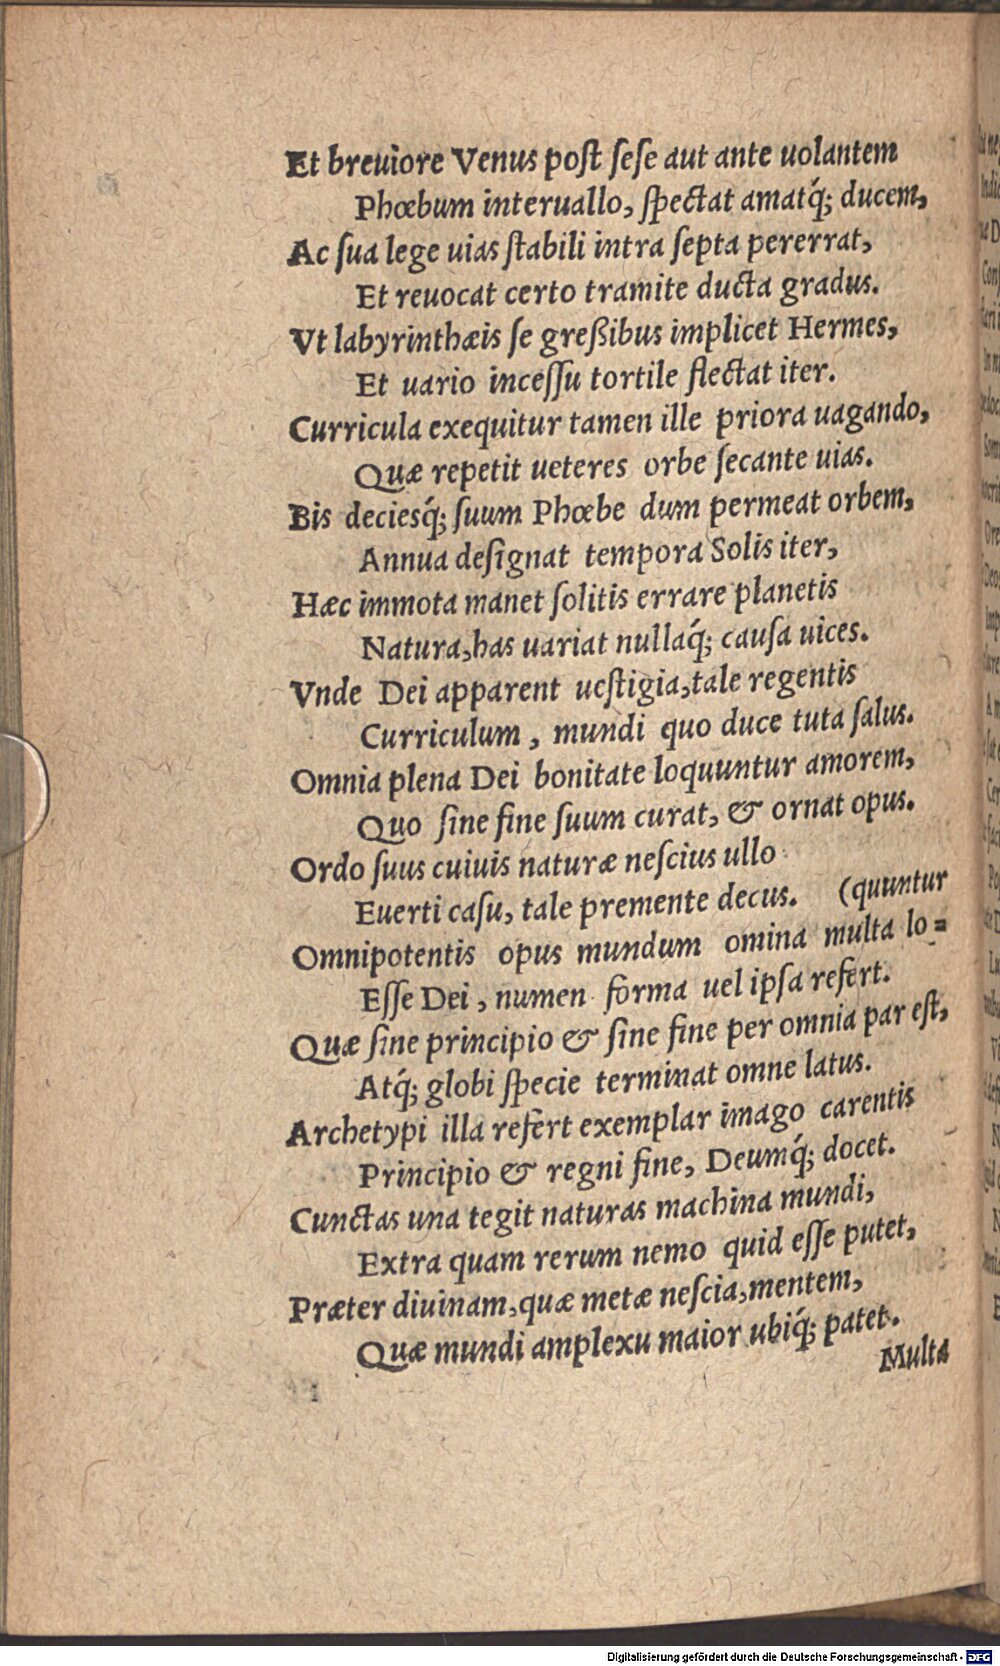 Et breuiore Venus poſt ſeſe aut ante uolantem
Phœbum interuallo, ſpectat amatq́; ducem,
Ac ſua lege uias ſtabili intra ſepta pererrat,
Et reuocat certo tramite ducta gradus.
Vt labyrinthæis ſe greßibus implicet Hermes,
Et uario inceſſu tortile flectat iter.
Curricula exequitur tamen ille priora uagando,
Quæ repetit ueteres orbe ſecante uias.
Bis deciesq́; ſuum Phœbe dum permeat orbem,
Annua deſignat tempora Solis iter,
Hæc immota manet ſolitis errare planetis
Natura, has uariat nullaq́; cauſa uices.
Vnde Dei apparent ueſtigia, tale regentis
Curriculum, mundi quo duce tuta ſalus.
Omnia plena Dei bonitate loquuntur amorem,
Quo ſine fine ſuum curat, & ornat opus.
Ordo ſuus cuiuis naturæ neſcius ullo
Euerti caſu, tale premente decus. (quuntur
Omnipotentis opus mundum omina multa lo=
Eſſe Dei, numen forma uel ipſa refert.
Quæ ſine principio & ſine fine per omnia par eſt,
Atq́; globi ſpecie terminat omne latus.
Archetypi illa refert exemplar imago carentis
Principio & regni fine, Deumq́; docet.
Cunctas una tegit naturas machina mundi,
Extra quam rerum nemo quid eſſe putet,
Præter diuinam, quæ metæ neſcia, mentem,
Quæ mundi amplexu maior ubiq́; patet.
Multa
Digitalisierung gefördert durch die Deutsche Forschungsgemeinschaft - DFG